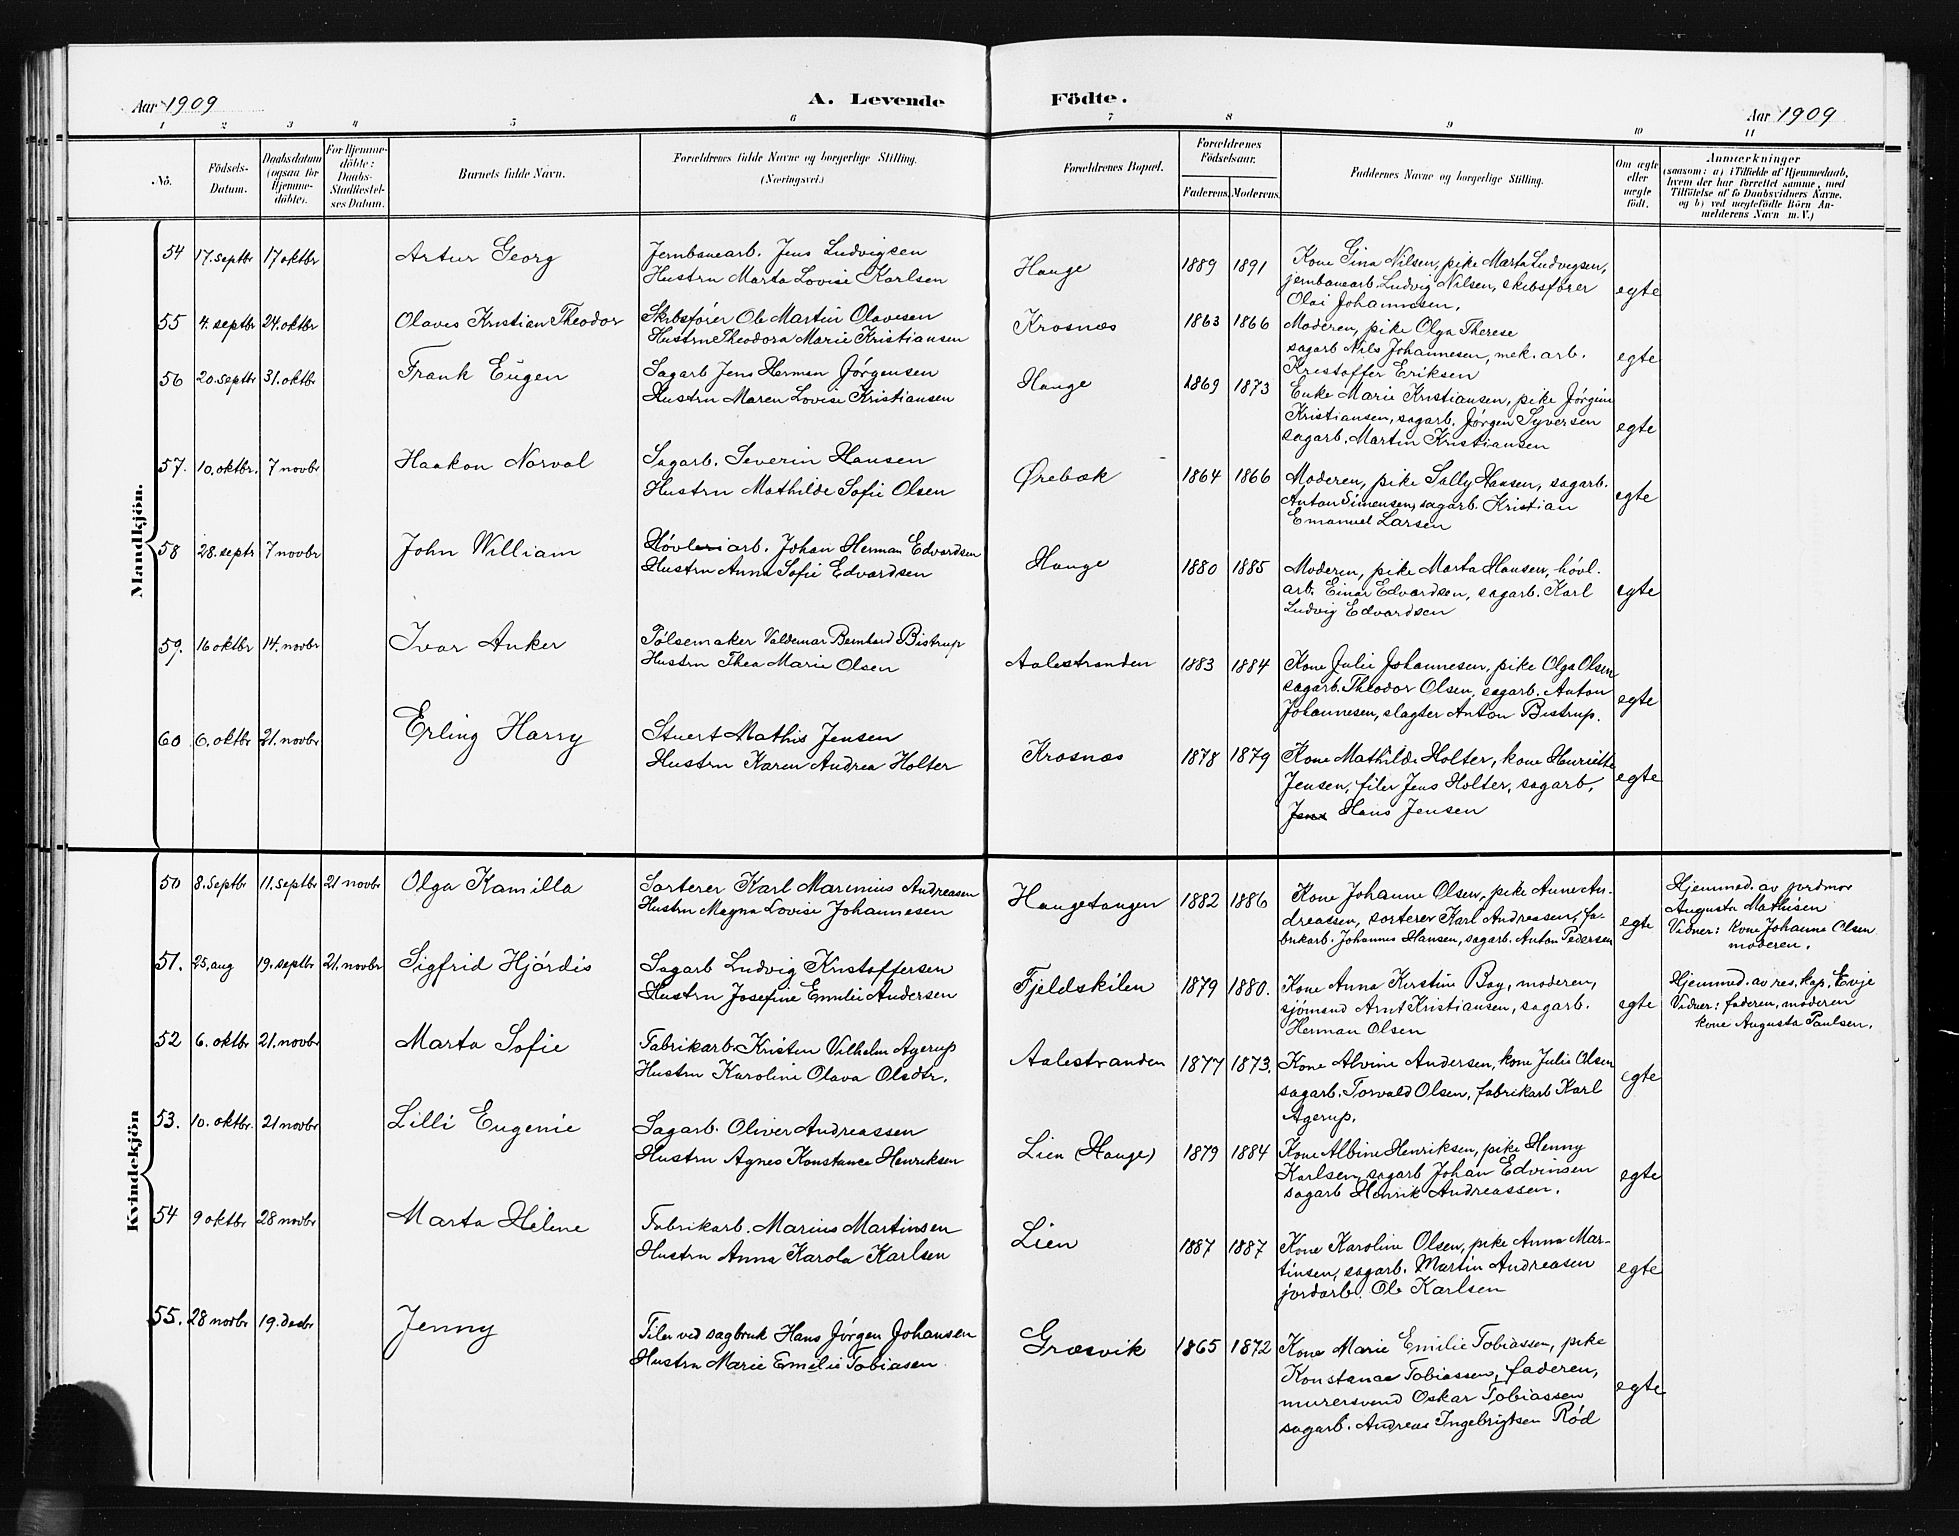 Aar 1909 A. Levende Födte. Aar 1909
1 2 3 4 5 6 7 8 9 10 11
No. Födsels-Datum. Daabsdatum (ogsaa for Hjemme-döbte). For Hjemme-döbte: Daabs-Stadfæstel-ses Datum. Barnets fulde Navn. Forældrenes fulde Navne og borgerlige Stilling. (Næringsvei.) Forældrenes Bopæl. Forældrenes Födselsaar. Faderens. Moderens. Faddernes Navne og borgerlige Stilling. Om ægte eller uægte født. Anmærkninger (saasom: a) i Tilfælde af Hjemmedaab, hvem der har forrettet samme, med Tilföielse af to Daabsvidners Navne, og b) ved uægtefödte Börn An-melderens Navn m. V.)
Mandkjön.
54 17. septbr 17 oktbr Artur Georg Jernbanearb. Jens Ludvigsen Hauge 1889 1891 Kone Gina Nilsen, pike Marta Ludvigsen,
Hustru Marta Lovise Karlsen jernbanearb. Ludvig Nilsen, skibsfører egte
Olai Johannesen.
55 4. septbr 24. oktbr Olaves Kristian Theodor Skibsfører Ole Martin Olavesen Krosnæs 1863 1866 Moderen, pike Olga Therese
Hustru Theodora Marie Kristiansen sagarb Nils Johannesen, mek. arb. egte
Kristoffer Eriksen
56 20. septbr 31. oktbr Frank Eugen Sagarb Jens Herman Jørgensen Hauge 1869 1873 Enke Marie Kristiansen, pike Jørgine
Hustru Maren Lovise Kristiansen Kristiansen, sagarb. Jørgen Syversen egte
sagarb. Martin Kristiansen
57. 10. oktbr. 7 novbr Haakon Norval Sagarb. Severin Hansen Ørebæk 1864 1866 Moderen, pike Sally Hansen, sagarb.
Hustru Mathilde Sofie Olsen Anton Simensen, sagarb. Kristian egte
Emanuel Larsen
58 28. septr 7 novbr John William Høvleriarb. Johan Herman Edvardsen Hauge 1880 1885 Moderen, pike Marta Hansen, høvl.
Hustru Anna Sofie Edvardsen arb. Einar Edvardsen, sagarb. Karl egte
Ludvig Edvardsen
59. 16 oktbr 14. novbr Ivar Anker Pølsemaker Valdemar Bernhard Bistrup Aalestranden 1883 1884 Kone Julie Johannesen, pike Olga Olsen
Hustru Thea Marie Olsen sagarb. Theodor Olsen, sagarb. Anton egte
Johannesen, slagter Anton Bistrup.
60 6. oktbr 21. novbr Erling Harry Stuert Mathis Jensen Krosnæs 1878 1879 Kone Mathilde Holter, kone Henriette
Hustru Karen Andrea Holter Jensen, filer Jens Holter, sagarb. egte
Jens Hans Jensen
Kvindekjön
50 8. septbr 11. septbr 21 novbr Olga Kamilla Sorterer Karl Marenius Andreasen Haugetangen 1882 1886 Kone Johanne Olsen, pike Anne An- Hjemmed. av jordmor
Hustru Magna Lovise Johannesen dreassen, sorterer Karl Andreassen, fa- egte Augusta Mathisen
brikarb. Johannes Hansen, sagarb. Anton Pedersen Vidner: kone Johanne Olsen
moderen.
51. 25. aug 19. septbr 21. novbr Sigfrid Hjördis Sagarb Ludvig Kristoffersen Fjeldskilen 1879 1880. Kone Anna Kirstine Boy, moderen, Hjemmed. av res. kap. Evje
Hustru Josefine Emilie Andersen sjømand Arnt Kristiansen, sagarb. egte Vidner: faderen, moderen
Herman Olsen kone Augusta Paulsen.
52 6. oktbr 21. novbr Marta Sofie Fabrikarb. Kristen Vilhelm Agerup Aalestranden 1877 1873. Kone Alvine Andersen, kone Julie Olsen
Hustru Karoline Olava Olsdtr. sagarb. Torvald Olsen, fabrikarb Karl egte
Agerup.
53. 10. oktbr. 21 novbr Lilli Eugenie Sagarb. Oliver Andreassen Lien (Hauge) 1879 1884 Kone Albine Henriksen, pike Henny
Hustru Agnes Konstance Henriksen Karlsen, sagarb Johan Edvinsen egte
sagarb Henrik Andreassen.
54 9 oktbr 28 novbr Marta Helene Fabrikarb. Marius Martinsen Lien 1887 1887 Kone Karoline Olsen, pike Anna Mar-
Hustru Anna Karola Karlsen tinsen, sagarb. Martin Andreasen egte
jordarb. Ole Karlsen
55. 28 novbr 19. decbr Jenny Filer ved sagbruk Hans Jørgen Johansen Græsvik 1865 1872 Kone Marie Emilie Tobiassen, pike
Hustru Marie Emelie Tobiasen Konstance Tobiassen, faderen, egte
murersvend Oskar Tobiassen
sagarb. Andreas Ingebrigtsen Rød